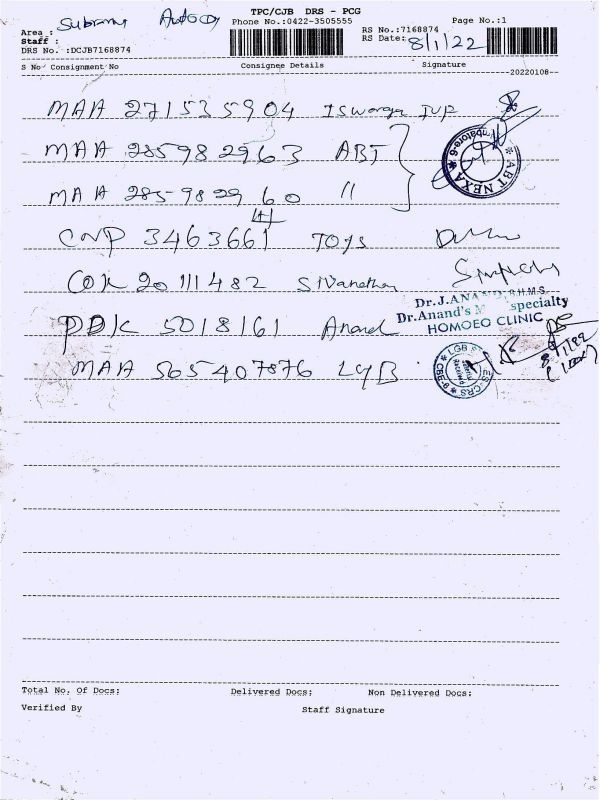 TPC/CJB DRS - PCG
Phone No.:0422-3505555
Page No.:1
Area :
Staff :
DRS No. :DCJB7168874
RS No.:7168874
RS Date: 8/1/22
S No Consignment No Consignee Details Signature
20220108
MAA 271535904
MAA 285982963 ABT
MAA 285982960 "
CNP 3463661 TOYS
COK 20111482 Sivanethra
PDK 5018161 Anand
MAA 565407876 LGB
ABT NEXA
Dr.J.ANAND B.H.M.S.
Dr.Anand's M specialty
HOMOEO CLINIC
8/1/22
Total No. Of Docs: Delivered Docs: Non Delivered Docs:
Verified By Staff Signature